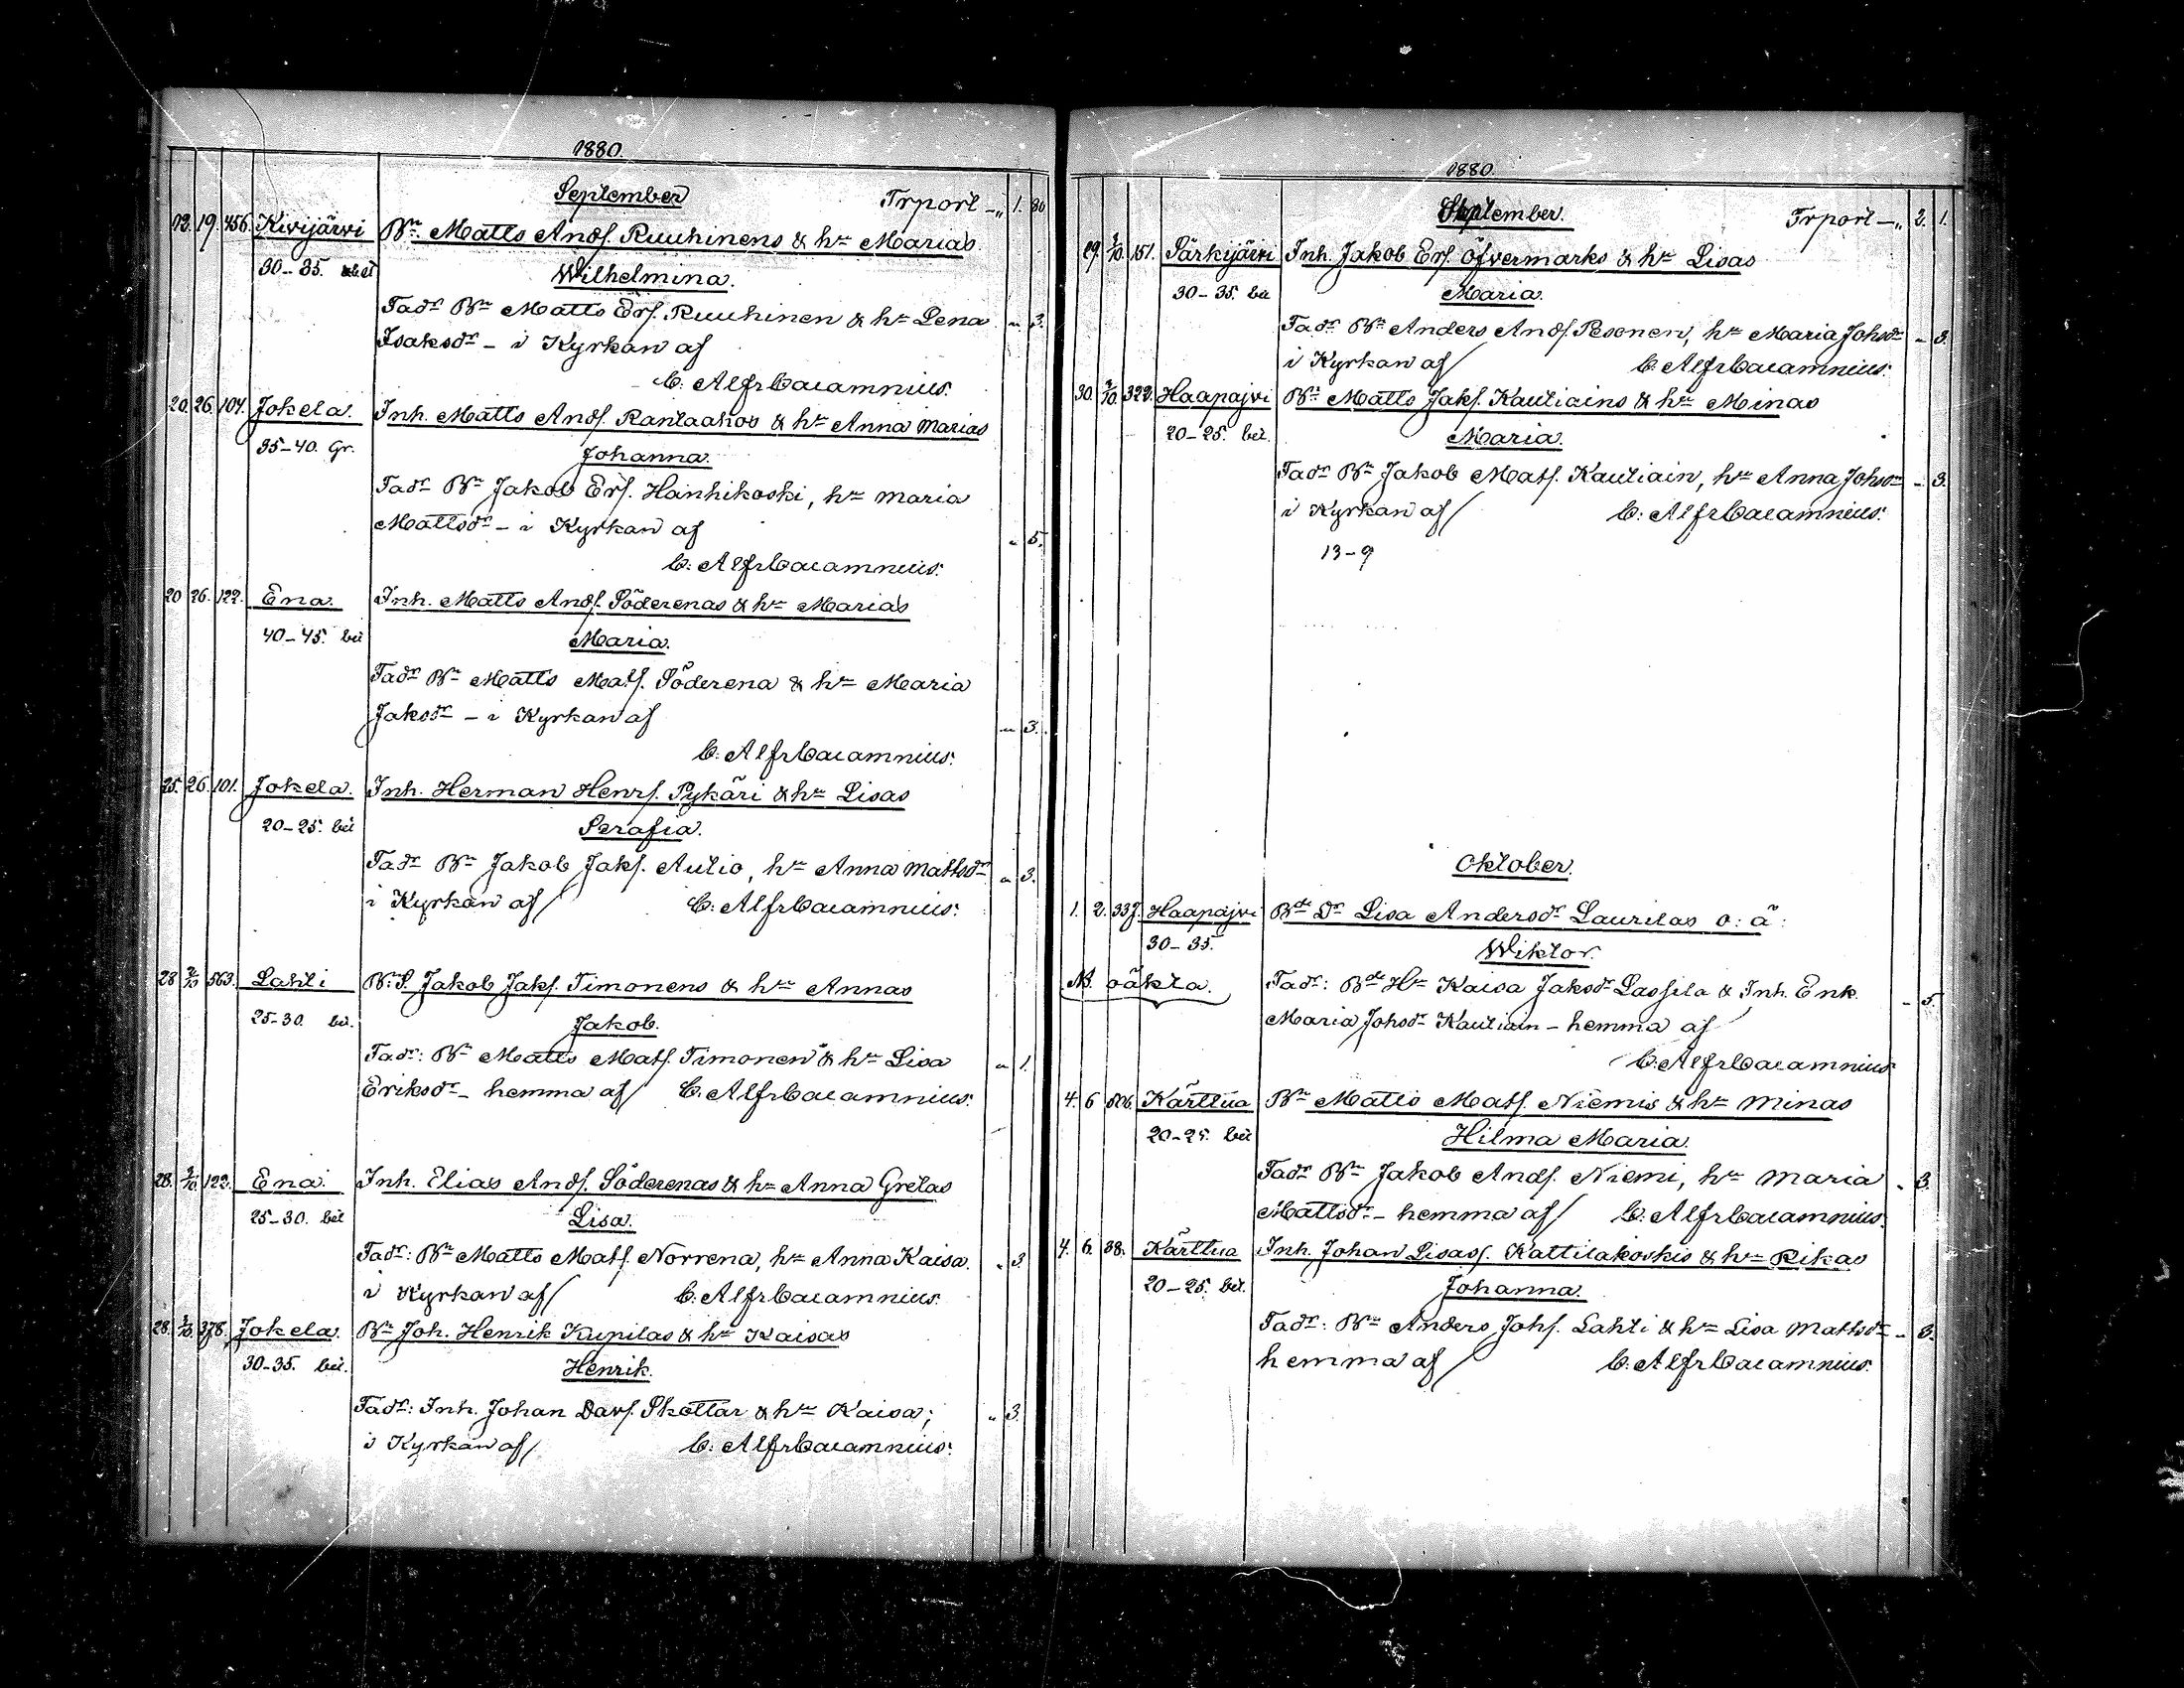 1880.
September Trport -„ 1. 80
12. 19. 456. Kivijärvi Bn. Matts Ands. Ruuhinens & hn Marias
30-35. bet Wilhelmina.
Fadr Bn Matts Ers. Ruuhinen & hn Lena „ 3.
Isaksdr - i Kyrkan af
C: Alfr Cacamnius.
20. 26. 104. Jokela. Inh. Matts Ands. Rantaahos & hn Anna Marias
35-40. Gr. Johanna.
Fadr Bn Jakob Ers. Hanhikoski, hn Maria
Mattsdr - i Kyrkan af „ 5.
C: Alfr Cacamnius.
20 26. 122. Ena. Inh. Matts Ands. Söderenas & hn Marias
40-45. bet Maria.
Fadr Bn Matts Mats. Söderena & hn Maria
Jaksdr - i Kyrkan af „ 3.
C: Alfr Cacamnius.
25. 26. 101. Jokela. Inh. Herman Henrs. Pykäri & hn Lisas
20-25. bet Serafia.
Fadr Bn Jakob Jaks. Autio, hn Anna Mattsdr „ 3.
i Kyrkan af/ C: Alfr Cacamnius.
28 2/10 563. Lahti B:S. Jakob Jaks. Timonens & hn Annas
25-30. bet. Jakob.
Fadr: Bn Matts Mats. Timonen & hn Lisa „ 1.
Eriksdr - hemma af/ C. Alfr Cacamnius.
28. 3/10. 122. Ena. Inh. Elias Ands. Söderenas & hn Anna Gretas
25-30. bet Lisa.
Fadr: Bn Matts Mats. Norrena, hn Anna Kaisa. „ 3.
i Kyrkan af/ C: Alfr Cacamnius.
28. 3/10. 378. Jokela. Bn Joh. Henrik Kupilas & hn Kaisas
30-35. bet. Henrik.
Fadr: Inh. Johan Davs. Skottar & hn Kaisa; „ 3.
i Kyrkan af/ C: Alfr Cacamnius.
1880.
September. Trport -„ 2. 1.
29. 3/10. 151. Särkijärvi Inh. Jakob Ers. Öfvermarks & hn Lisas
30-35. bet Maria.
Fadr Bn Anders Ands. Pesonen, hn Maria Johsdr „ 3.
i Kyrkan af/ C: Alfr Cacamnius.
30. 3/10. 322. Haapajvi Bn Matts Jaks. Kautiains & hn Minas
20-25. bet. Maria.
Fadr Bn Jakob Mats. Kautiain, hn Anna Johsdr - 3.
i Kyrkan af/ C: Alfr Cacamnius.
13-9
Oktober.
1. 2. 337. Haapajvi Bde Dr Lisa Andersdr Laurilas o: ä:
30-35. Wiktor.
NB. oäkta. Fadr: Bde Hn Kaisa Jaksdr Lassila & Inh. Enk. - 5.
Maria Johsdr Kautiain - hemma af
C: Alfr Cacamnius
4. 6 506. Kärttua Bn Matts Mats. Niemis & hn Minas
20-25. bet Hilma Maria.
Fadr Bn Jakob Ands. Niemi, hn Maria „ 3.
Mattsdr - hemma af/ C: Alfr Cacamnius.
4. 6. 88. Kärttua Inh. Johan Lisass. Kattilakoskis & hn Rikas
20-25. bet. Johanna.
Fadr: Bn Anders Johs. Lahti & hn Lisa Mattsdr - 3.
hemma af/ C: Alfr Cacamnius.